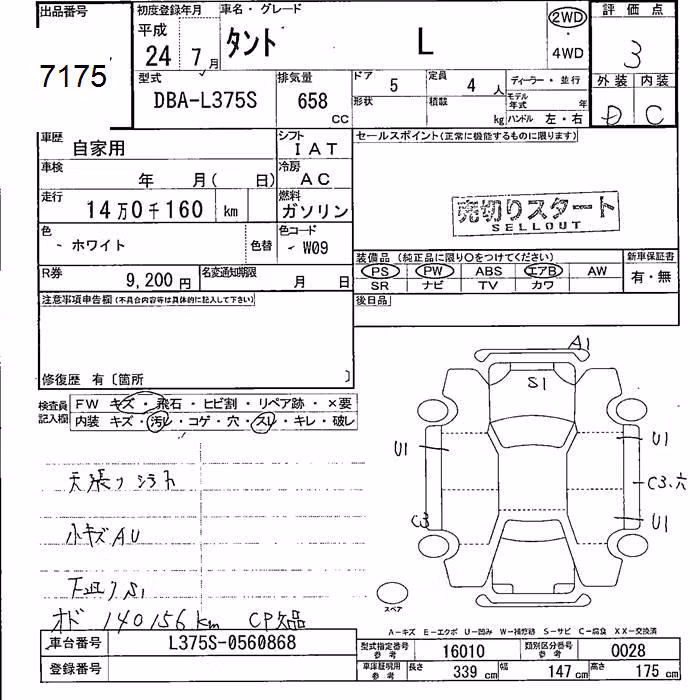 出品番号 7175
初度登録年月 平成 24 7月
車名・グレード タント L
2WD・4WD
評価点 3
外装 D 内装 C
型式 DBA-L375S
排気量 658 CC
ドア 5 定員 4人
形状 積載 kg
ディーラー・並行
モデル年式 年
ハンドル 左・右
車歴 自家用
シフト IAT
セールスポイント(正常に機能するものに限ります)
車検 年 月( 日)
冷房 AC
走行 14万0千160 km
燃料 ガソリン
売切りスタート
SELLOUT
色 ホワイト 色替
色コード W09
装備品 (純正品に限り○をつけてください)
新車保証書 有・無
PS PW ABS エアB AW
SR ナビ TV カワ
R券 9,200円
名変通知期限 月 日
後日品
注意事項申告欄(不具合内容等は具体的に記入して下さい)
修復歴 有〔箇所 〕
検査員記入欄
FW キズ・飛石・ヒビ割・リペア跡・×要
内装 キズ・汚レ・コゲ・穴・スレ・キレ・破レ
天張り シミ
小キズ AU
下廻り S1
オド 140156km CP欠品
A1
S1
U1 U1
C3.穴
C3 U1
スペア
A-キズ E-エクボ U-凹み W-補修跡 S-サビ C-腐食 XX-交換済
車台番号 L375S-0560868
登録番号
型式指定番号 参考 16010
類別区分番号 参考 0028
車庫証明用 参考 長さ 339cm 幅 147cm 高さ 175cm